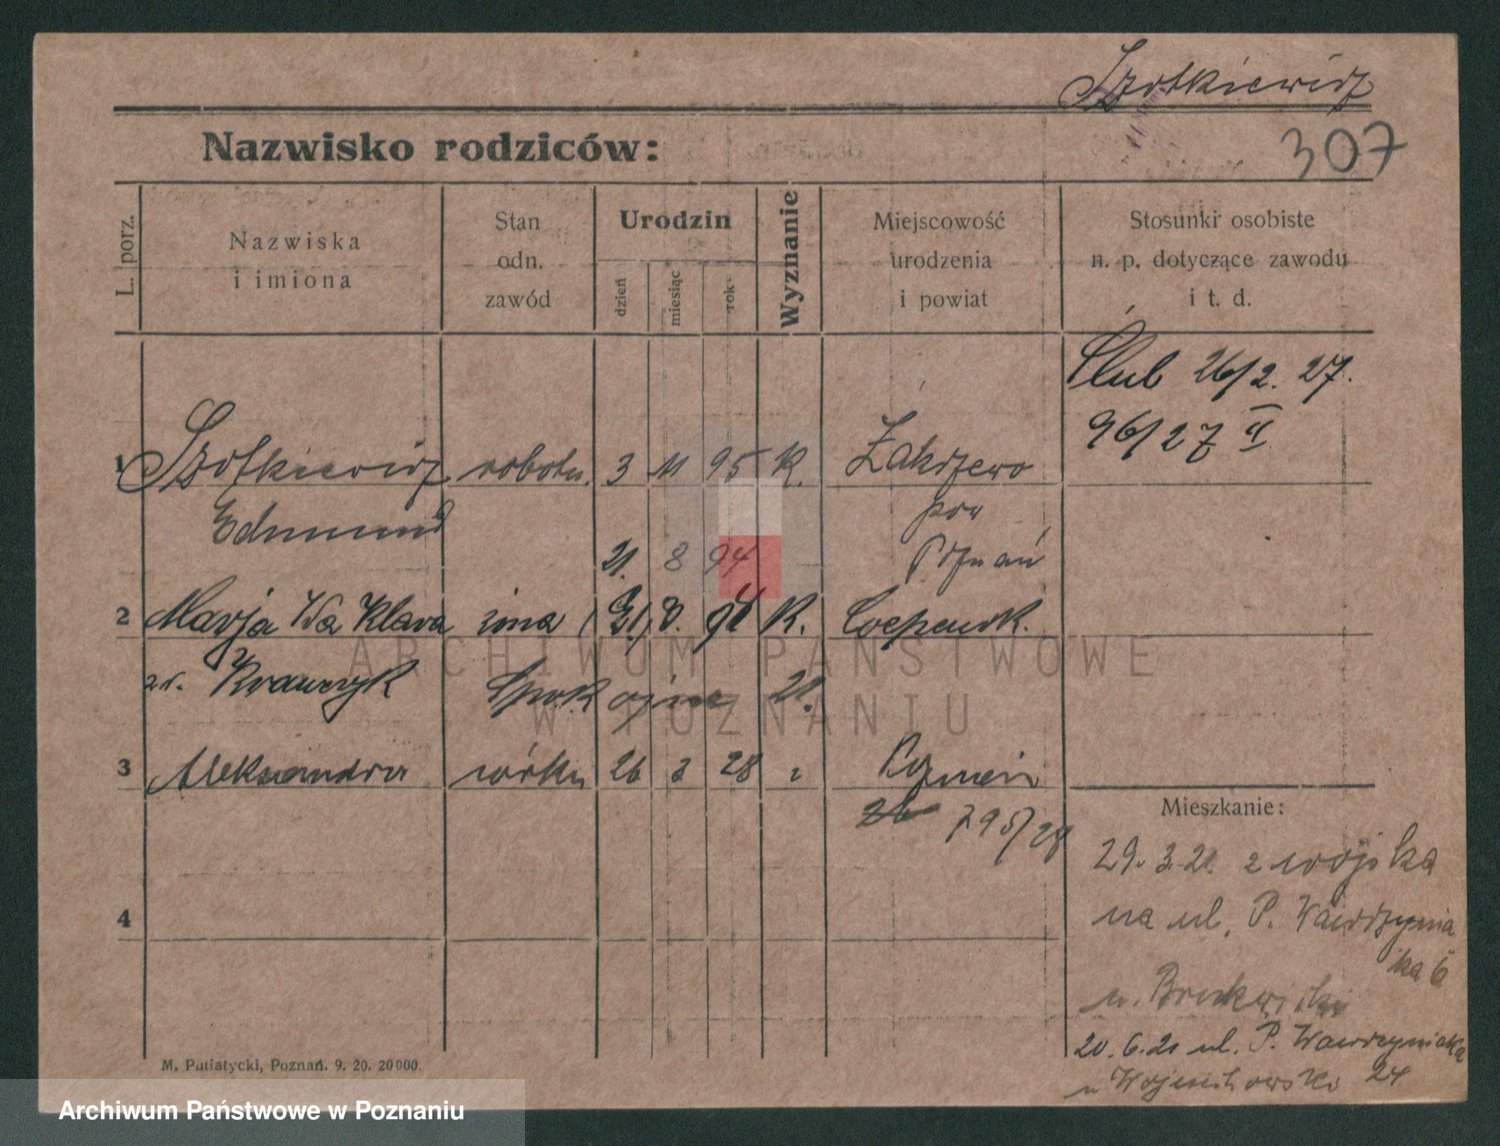 Szotkiewicz
307
Nazwisko rodziców:
L. porz.
Nazwiska
i imiona
Stan
odn.
zawód
Urodzin
dzień
miesiąc
rok
Wyznanie
Miejscowość
urodzenia
i powiat
Stosunki osobiste
n. p. dotyczące zawodu
i t. d.
Ślub 26/2. 27.
96/27 II
1 Szotkiewicz robotn. 3 11 95 K. Zakrzewo
Edmund pow
21. 8 94 Poznań
2 Marja Wa Klara żona K.
z d. Krawczyk
3 Aleksandra córka 26 2 28 Poznań
795/28
Mieszkanie:
29. 3. 21. z wojska
na ul. P. Wawrzynia
ka 6
4
20. 6. 21 ul. P. Wawrzyniaka
u Wojciechowski 24
M. Putiatycki, Poznań. 9. 20. 20000.
ARCHIWUM PAŃSTWOWE
W POZNANIU
Archiwum Państwowe w Poznaniu